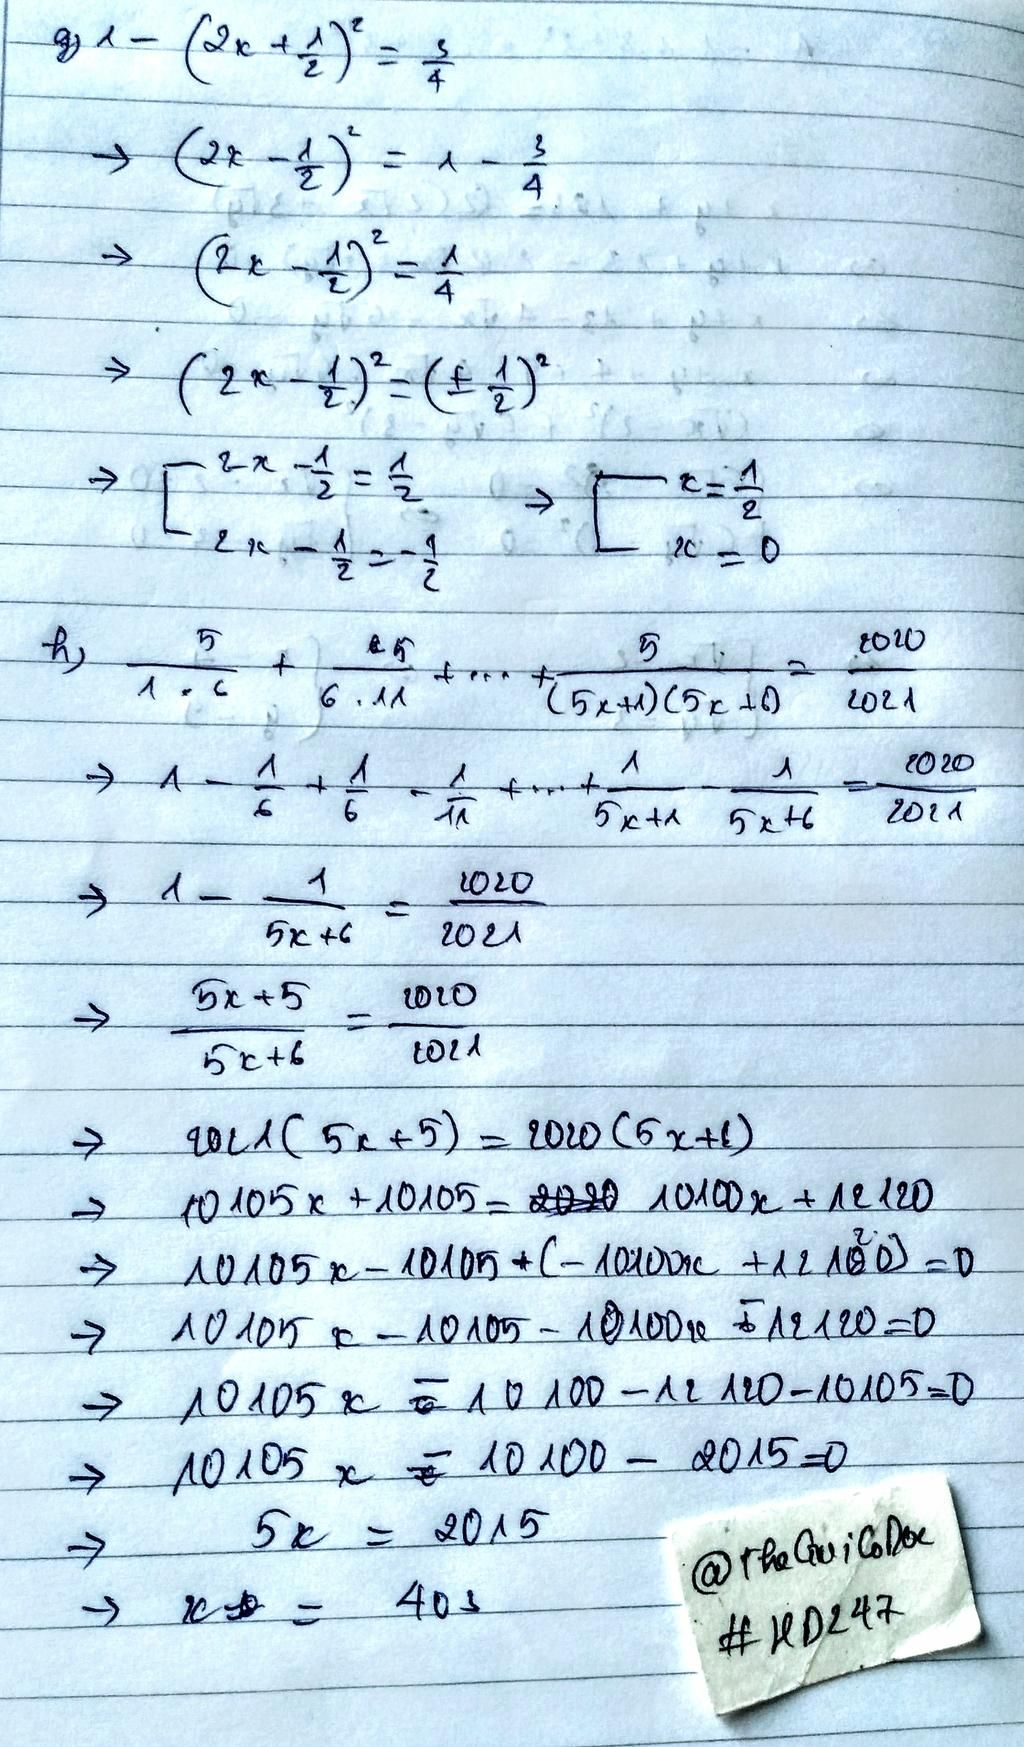 g) 1 - (2x + 1/2)² = 3/4
→ (2x - 1/2)² = 1 - 3/4
→ (2x - 1/2)² = 1/4
→ (2x - 1/2)² = (± 1/2)²
→ [ 2x - 1/2 = 1/2 → [ x = 1/2
2x - 1/2 = -1/2 x = 0
h) 5/(1 . 6) + 5/(6 . 11) + ... + 5/((5x+1)(5x+6)) = 2020/2021
→ 1 - 1/6 + 1/6 - 1/11 + ... + 1/(5x+1) - 1/(5x+6) = 2020/2021
→ 1 - 1/(5x+6) = 2020/2021
→ (5x+5)/(5x+6) = 2020/2021
→ 2021(5x+5) = 2020(5x+6)
→ 10105x + 10105 = 10100x + 12120
→ 10105x - 10105 + (-10100x + 12120) = 0
→ 10105x - 10105 - 10100x - 12120 = 0
→ 10105x - 10100 - 12120 - 10105 = 0
→ 10105x - 10100 - 2015 = 0
→ 5x = 2015
→ x = 403
@TheQuiCoDoc
#HD247